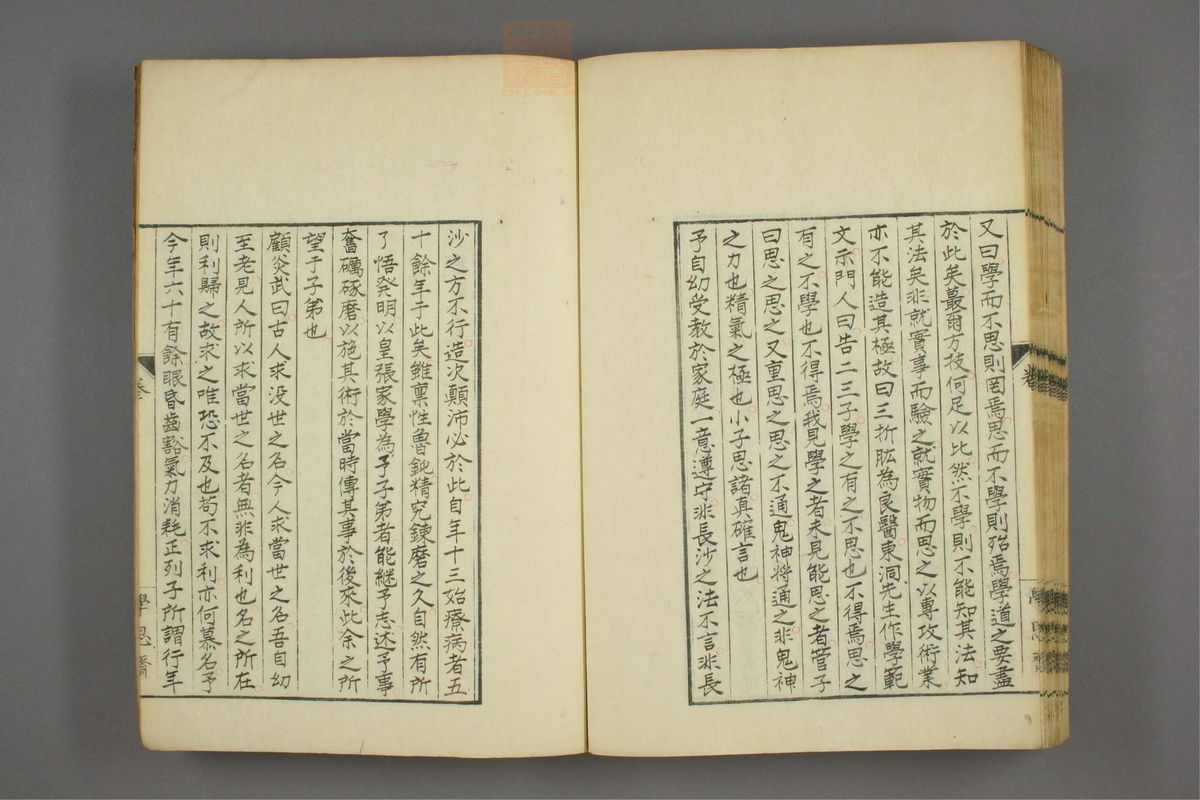 又曰學而不思則罔焉思而不學則殆焉學道之要盡
於此矣蕞爾方技何足以比然不學則不能知其法知
其法矣非就實事而驗之就實物而思之以專攻術業
亦不能造其極故曰三折肱為良醫東洞先生作學範
文示門人曰告二三子學之有之不思也不得焉思之
有之不學也不得焉我見學之者未見能思之者管子
曰思之思之又重思之思之不通鬼神將通之非鬼神
之力也精氣之極也小子思諸真確言也
予自幼受教於家庭一意遵守非長沙之法不言非長
沙之方不行造次顛沛必於此自年十三始療病者五
十餘年于此矣雖稟性魯鈍精究鍊磨之久自然有所
了悟發明以皇張家學為予子弟者能継予志述予事
奮礪琢磨以施其術於當時傳其事於後來此余之所
望于子弟也
顧炎武曰古人求没世之名今人求當世之名吾自幼
至老見人所以求當世之名者無非為利也名之所在
則利歸之故求之唯恐不及也苟不求利亦何慕名予
今年六十有餘眼昏齒豁氣力消耗正列子所謂行年
學思齋